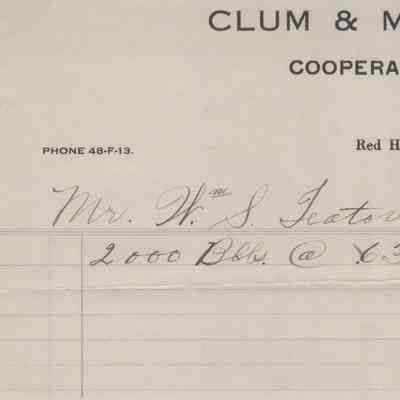 CLUM & M
COOPERA
PHONE 48-F-13.
Red H
Mr. Wm S. Teator
2000 Bbls. @ .63